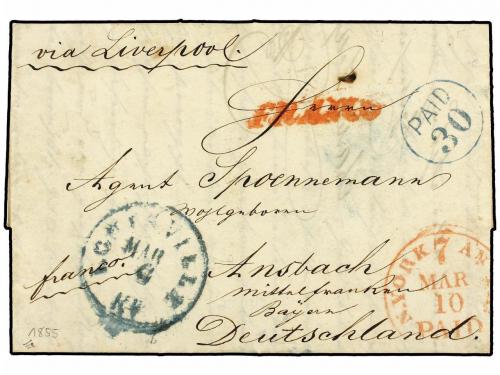 via Liverpool.
Herrn
FRANCO
PAID
30
Agent Spoennemann
Wohlgeboren
LOUISVILLE
MAR
6
KY
franco.
Ansbach
Mittelfranken
Bayern
Deutschland.
N. YORK AM
7
MAR
10
PAID
1855